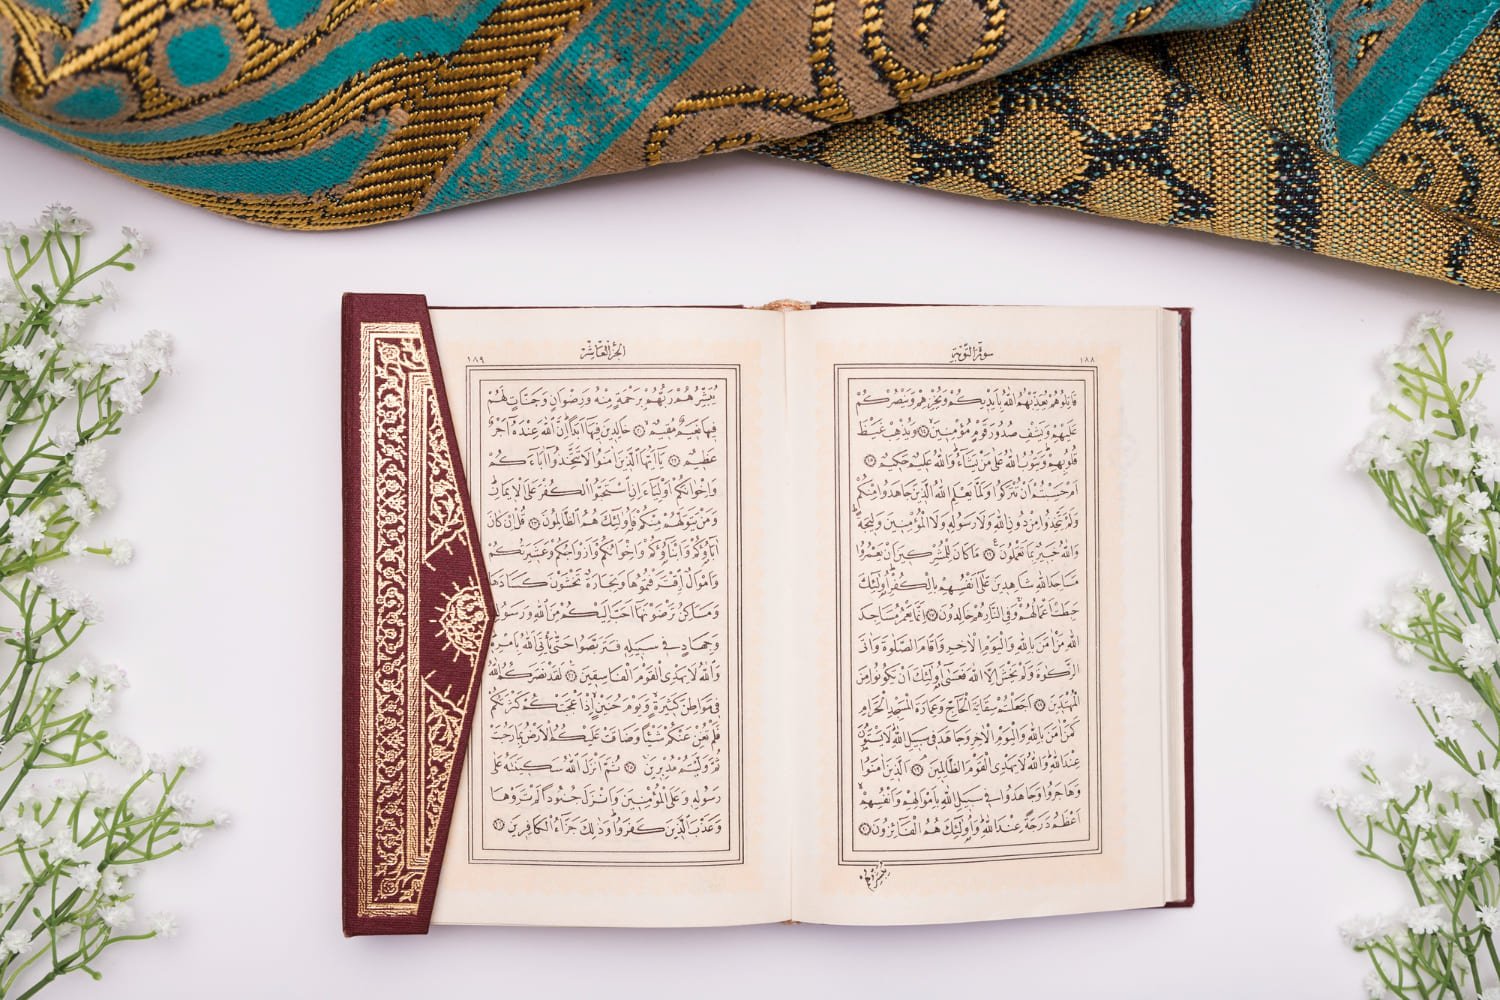 سُورَةُ التَّوْبَةِ ١٨٨
قَاتِلُوهُمْ يُعَذِّبْهُمُ اللّٰهُ بِاَيْدِيكُمْ وَيُخْزِهِمْ وَيَنْصُرْكُمْ
عَلَيْهِمْ وَيَشْفِ صُدُورَ قَوْمٍ مُؤْمِنِينَ ١٤ وَيُذْهِبْ غَيْظَ
قُلُوبِهِمْ وَيَتُوبُ اللّٰهُ عَلٰى مَنْ يَشَٓاءُ وَاللّٰهُ عَلِيمٌ حَكِيمٌ ١٥
اَمْ حَسِبْتُمْ اَنْ تُتْرَكُوا وَلَمَّا يَعْلَمِ اللّٰهُ الَّذِينَ جَاهَدُوا مِنْكُمْ
وَلَمْ يَتَّخِذُوا مِنْ دُونِ اللّٰهِ وَلَا رَسُولِهِ وَلَا الْمُؤْمِنِينَ وَلِيجَةً
وَاللّٰهُ خَبِيرٌ بِمَا تَعْمَلُونَ ١٦ مَا كَانَ لِلْمُشْرِكِينَ اَنْ يَعْمُرُوا
مَسَاجِدَ اللّٰهِ شَاهِدِينَ عَلٰٓى اَنْفُسِهِمْ بِالْكُفْرِ اُو۬لٰٓئِكَ
حَبِطَتْ اَعْمَالُهُمْ وَفِي النَّارِ هُمْ خَالِدُونَ ١٧ اِنَّمَا يَعْمُرُ مَسَاجِدَ
اللّٰهِ مَنْ اٰمَنَ بِاللّٰهِ وَالْيَوْمِ الْاٰخِرِ وَاَقَامَ الصَّلٰوةَ وَاٰتَى
الزَّكٰوةَ وَلَمْ يَخْشَ اِلَّا اللّٰهَ فَعَسٰٓى اُو۬لٰٓئِكَ اَنْ يَكُونُوا مِنَ
الْمُهْتَدِينَ ١٨ اَجَعَلْتُمْ سِقَايَةَ الْحَٓاجِّ وَعِمَارَةَ الْمَسْجِدِ الْحَرَامِ
كَمَنْ اٰمَنَ بِاللّٰهِ وَالْيَوْمِ الْاٰخِرِ وَجَاهَدَ فِي سَبِيلِ اللّٰهِ لَا يَسْتَوُ۫نَ
عِنْدَ اللّٰهِ وَاللّٰهُ لَا يَهْدِي الْقَوْمَ الظَّالِمِينَ ١٩ اَلَّذِينَ اٰمَنُوا
وَهَاجَرُوا وَجَاهَدُوا فِي سَبِيلِ اللّٰهِ بِاَمْوَالِهِمْ وَاَنْفُسِهِمْ
اَعْظَمُ دَرَجَةً عِنْدَ اللّٰهِ وَاُو۬لٰٓئِكَ هُمُ الْفَٓائِزُونَ ٢٠
يُبَشِّرُهُمْ
اَلْجُزْءُ الْعَاشِرُ ١٨٩
يُبَشِّرُهُمْ رَبُّهُمْ بِرَحْمَةٍ مِنْهُ وَرِضْوَانٍ وَجَنَّاتٍ لَهُمْ
فِيهَا نَعِيمٌ مُقِيمٌ ٢١ خَالِدِينَ فِيهَٓا اَبَدًا اِنَّ اللّٰهَ عِنْدَهُٓ اَجْرٌ
عَظِيمٌ ٢٢ يَٓا اَيُّهَا الَّذِينَ اٰمَنُوا لَا تَتَّخِذُٓوا اٰبَٓاءَكُمْ
وَاِخْوَانَكُمْ اَوْلِيَٓاءَ اِنِ اسْتَحَبُّوا الْكُفْرَ عَلَى الْاِيمَانِ
وَمَنْ يَتَوَلَّهُمْ مِنْكُمْ فَاُو۬لٰٓئِكَ هُمُ الظَّالِمُونَ ٢٣ قُلْ اِنْ كَانَ
اٰبَٓاؤُ۬كُمْ وَاَبْنَٓاؤُ۬كُمْ وَاِخْوَانُكُمْ وَاَزْوَاجُكُمْ وَعَشِيرَتُكُمْ
وَاَمْوَالٌ اقْتَرَفْتُمُوهَا وَتِجَارَةٌ تَخْشَوْنَ كَسَادَهَا
وَمَسَاكِنُ تَرْضَوْنَهَٓا اَحَبَّ اِلَيْكُمْ مِنَ اللّٰهِ وَرَسُولِهِ
وَجِهَادٍ فِي سَبِيلِهِ فَتَرَبَّصُوا حَتّٰى يَأْتِيَ اللّٰهُ بِاَمْرِهِ
وَاللّٰهُ لَا يَهْدِي الْقَوْمَ الْفَاسِقِينَ ٢٤ لَقَدْ نَصَرَكُمُ اللّٰهُ
فِي مَوَاطِنَ كَثِيرَةٍ وَيَوْمَ حُنَيْنٍ اِذْ اَعْجَبَتْكُمْ كَثْرَتُكُمْ
فَلَمْ تُغْنِ عَنْكُمْ شَيْـًٔا وَضَاقَتْ عَلَيْكُمُ الْاَرْضُ بِمَا رَحُبَتْ
ثُمَّ وَلَّيْتُمْ مُدْبِرِينَ ٢٥ ثُمَّ اَنْزَلَ اللّٰهُ سَكِينَتَهُ عَلٰى
رَسُولِهِ وَعَلَى الْمُؤْمِنِينَ وَاَنْزَلَ جُنُودًا لَمْ تَرَوْهَا
وَعَذَّبَ الَّذِينَ كَفَرُوا وَذٰلِكَ جَزَٓاءُ الْكَافِرِينَ ٢٦